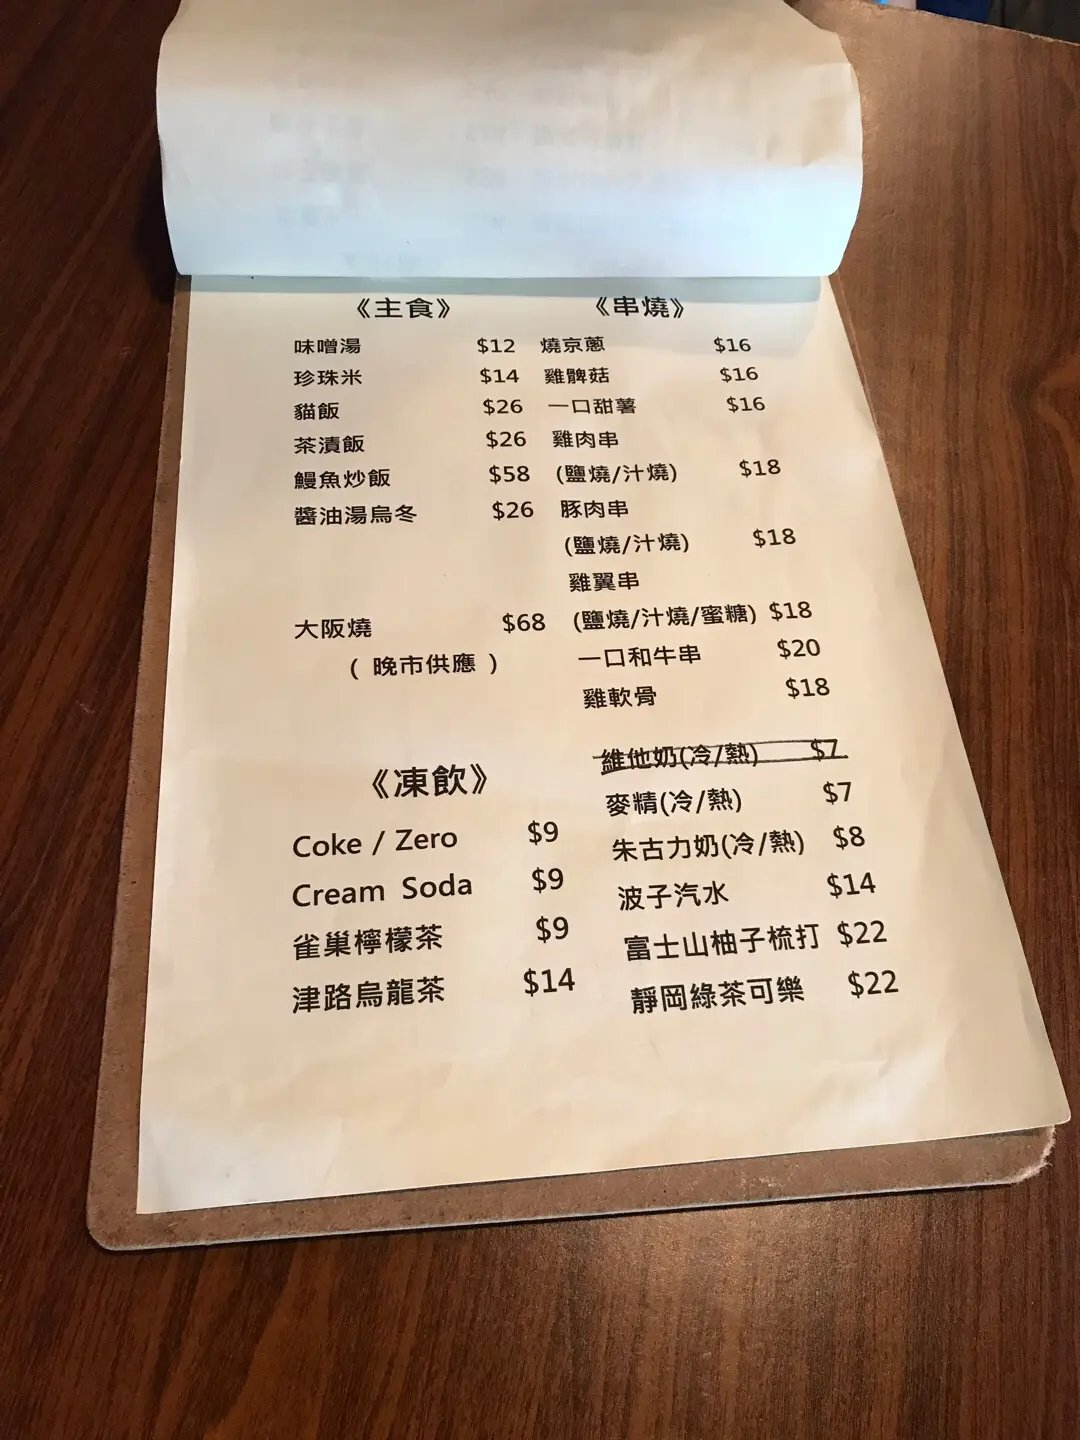 《主食》
味噌湯 $12
珍珠米 $14
貓飯 $26
茶漬飯 $26
鰻魚炒飯 $58
醬油湯烏冬 $26
大阪燒 $68
( 晚市供應 )
《串燒》
燒京蔥 $16
雞髀菇 $16
一口甜薯 $16
雞肉串
(鹽燒/汁燒) $18
豚肉串
(鹽燒/汁燒) $18
雞翼串
(鹽燒/汁燒/蜜糖) $18
一口和牛串 $20
雞軟骨 $18
《凍飲》
Coke / Zero $9
Cream Soda $9
雀巢檸檬茶 $9
津路烏龍茶 $14
維他奶(冷/熱) $7
麥精(冷/熱) $7
朱古力奶(冷/熱) $8
波子汽水 $14
富士山柚子梳打 $22
靜岡綠茶可樂 $22